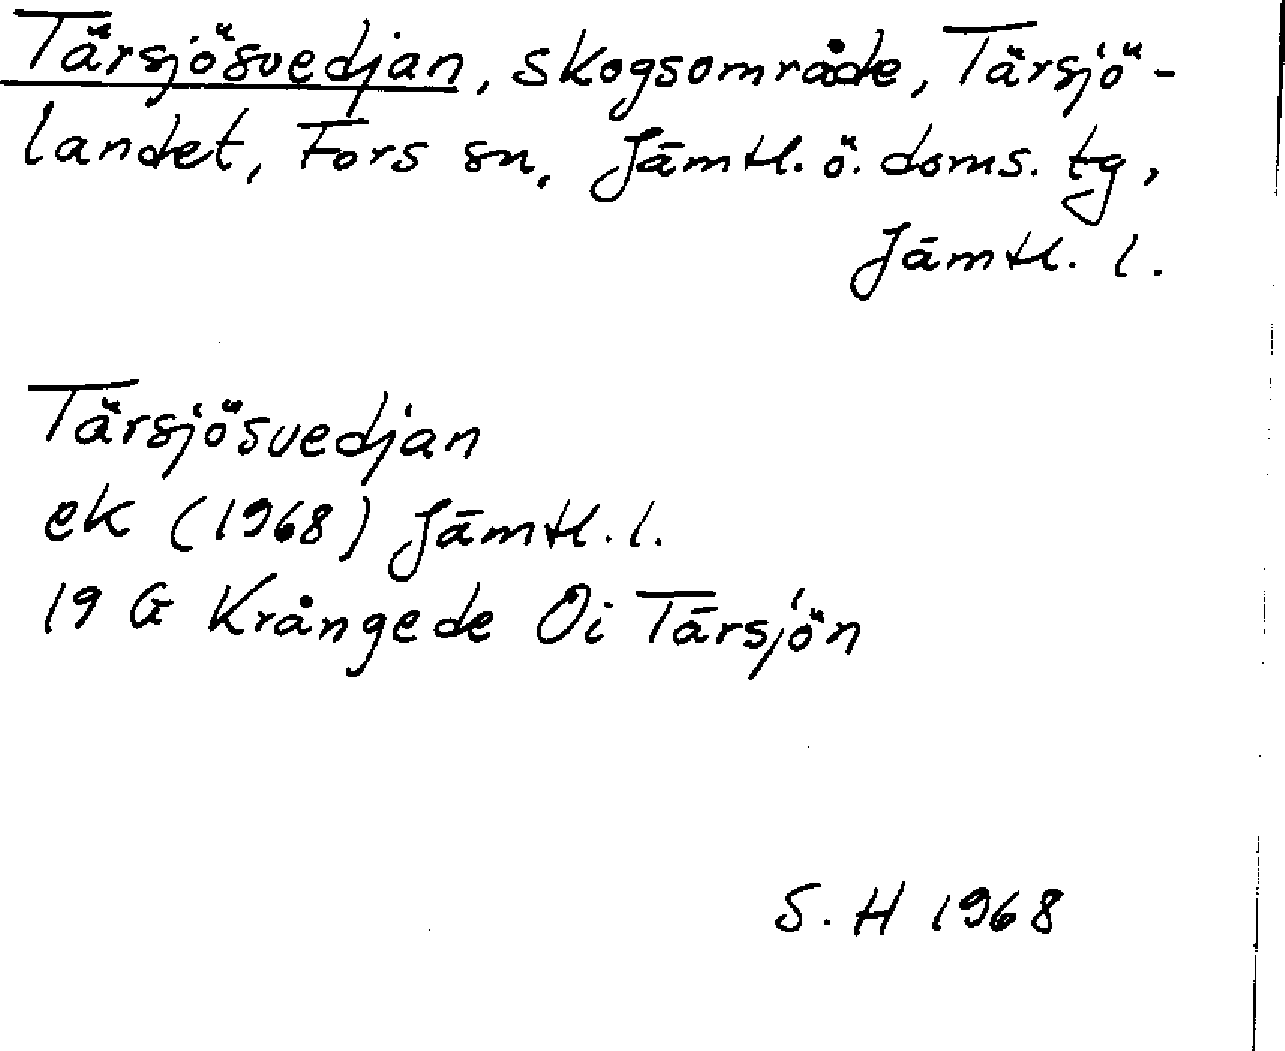 Tärsjösvedjan, skogsområde, Tärsjö-
landet, Fors sn, Jämtl. ö. doms. tg,
Jämtl. l.
Tärsjösvedjan
ek (1968) Jämtl. l.
19 G Krångede Oi Tärsjön
S. H 1968